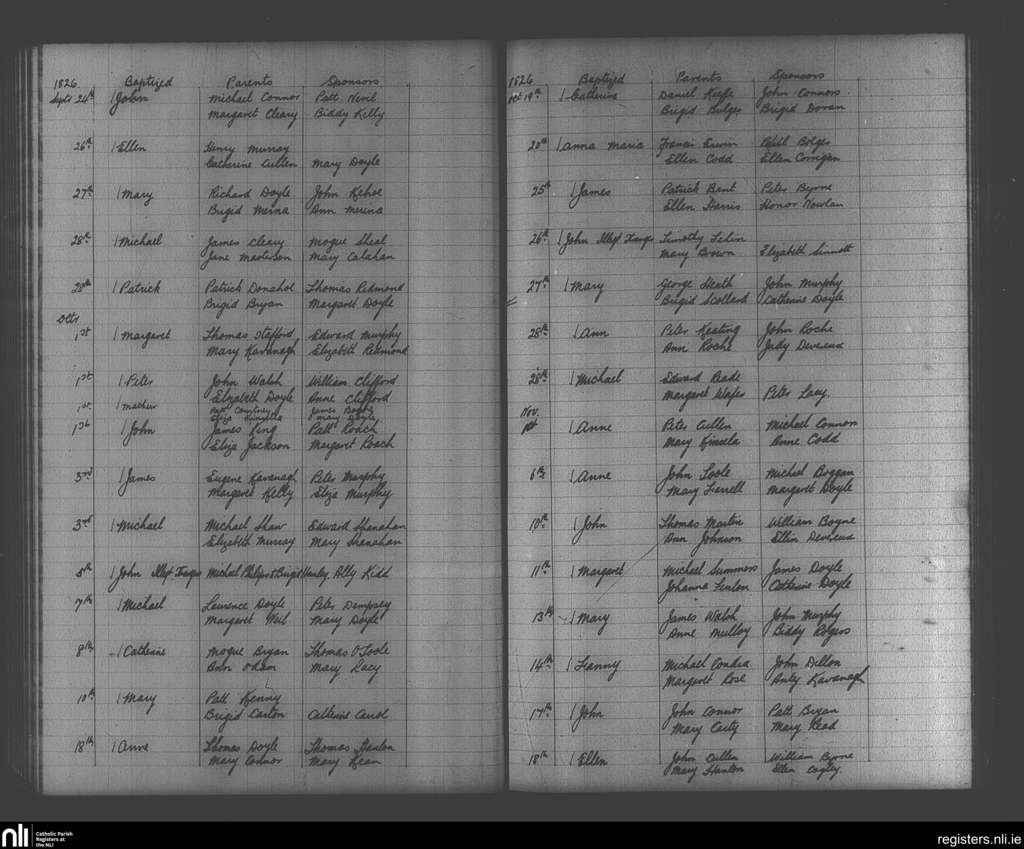 1826 Baptized Parents Sponsors
Septr 24th John Michael Connor Patt Nevil
Margaret Cleary Biddy Kelly
26th Ellen Henry Murray
Catherine Cullen Mary Doyle
27th Mary Richard Doyle John Kehoe
Brigid Merna Ann Merina
28th Michael James Cleary Mogue Sheal
Jane Masterson Mary Calahan
28th Patrick Patrick Donahoe Thomas Redmond
Brigid Bryan Margaret Doyle
Octr
1st Margaret Thomas Stafford Edward Murphy
Mary Kavanagh Elizabeth Redmond
1st Peter John Walsh William Clifford
Elizabeth Doyle Anne Clifford
1st Mathew Patt Courtney James
Eliza Kinsella Mary Doyle
1st John James King Patt Roach
Eliza Jackson Margaret Roach
3rd James Eugene Kavanagh Peter Murphy
Margaret Kelly Eliza Murphy
3rd Michael Michael Shaw Edward Shanahan
Elizabeth Murray Mary Shanahan
5th John Illegt Michael Philips & Brigid Henley, Ally Kidd
7th Michael Laurence Doyle Peter Dempsey
Margaret Neil Mary Doyle
8th Catherine Mogue Bryan Thomas O'Toole
Mary Lacy
10th Mary Patt Kenny
Brigid Carton Catherine Carrol
18th Anne Thomas Doyle Thomas Hanlon
Mary Connor Mary Kean
1826 Baptized Parents Sponsors
Oct 19th Catherine Daniel Keefe John Connors
Brigid Bulger Brigid Doran
20th Anna Maria Francis Erwin Bolger
Ellen Codd Ellen Corrigan
25th James Patrick Bent Peter Byrne
Ellen Harris Honor Nowlan
26th John Illegt Timothy
Mary Brown Elizabeth Sinnott
27th Mary George Heath John Murphy
Brigid Scollard Catherine Doyle
28th Ann Peter Keating John Roche
Ann Roche Judy Devereux
28th Michael Edward Reade
Margaret Wafer Peter Lacy
Nov.
1st Anne Peter Cullen Michael Connor
Mary Kinsela Anne Codd
6th Anne John Toole Michael Boggan
Mary Farrell Margaret Doyle
10th John Thomas Martin William Boyne
Ann Johnson Ellin Devereux
11th Margaret Michael Summers James Doyle
Johanna Fenlon Catherine Doyle
13th Mary James Walsh John Murphy
Anne Mulloy Biddy Rogers
14th Fanny Michael Condra John Dillon
Margaret Rose Anty Kavanagh
17th John John Connor Patt Bryan
Mary Carty Mary Read
18th Ellen John Cullen William Byrne
Mary Hanton Ellen Cogley
nli Catholic Parish
Registers at
the NLI
registers.nli.ie